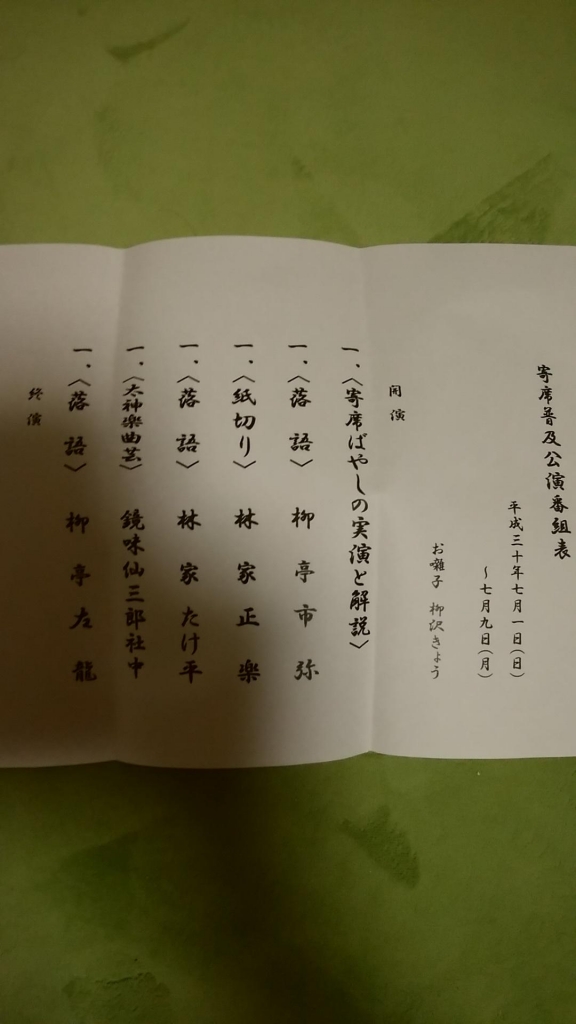 寄席普及公演番組表
平成三十年七月一日(日)
~七月九日(月)
お囃子 柳沢きょう
開演
一、〈寄席ばやしの実演と解説〉
一、〈落語〉 柳亭市弥
一、〈紙切り〉 林家正楽
一、〈落語〉 林家たけ平
一、〈太神楽曲芸〉 鏡味仙三郎社中
一、〈落語〉 柳亭左龍
終演